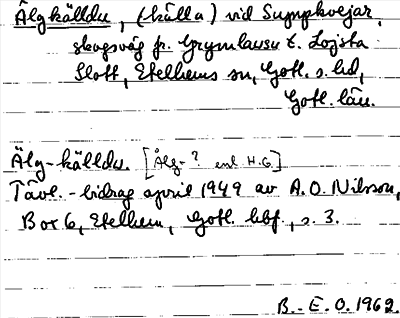 Älgkälldu, (källa) vid Sumpkvejar,
skogsväg fr. Grymlausu t. Lojsta
Slott, Etelhems sn, Gotl. s. hd,
Gotl. län.
Älg-källdu. [Älg-? enl. H.G.]
Tävl.-bidrag april 1949 av A.O. Nilsson,
Box 6, Etelhem, Gotl. hbf., s. 3.
B.-E.O. 1962.